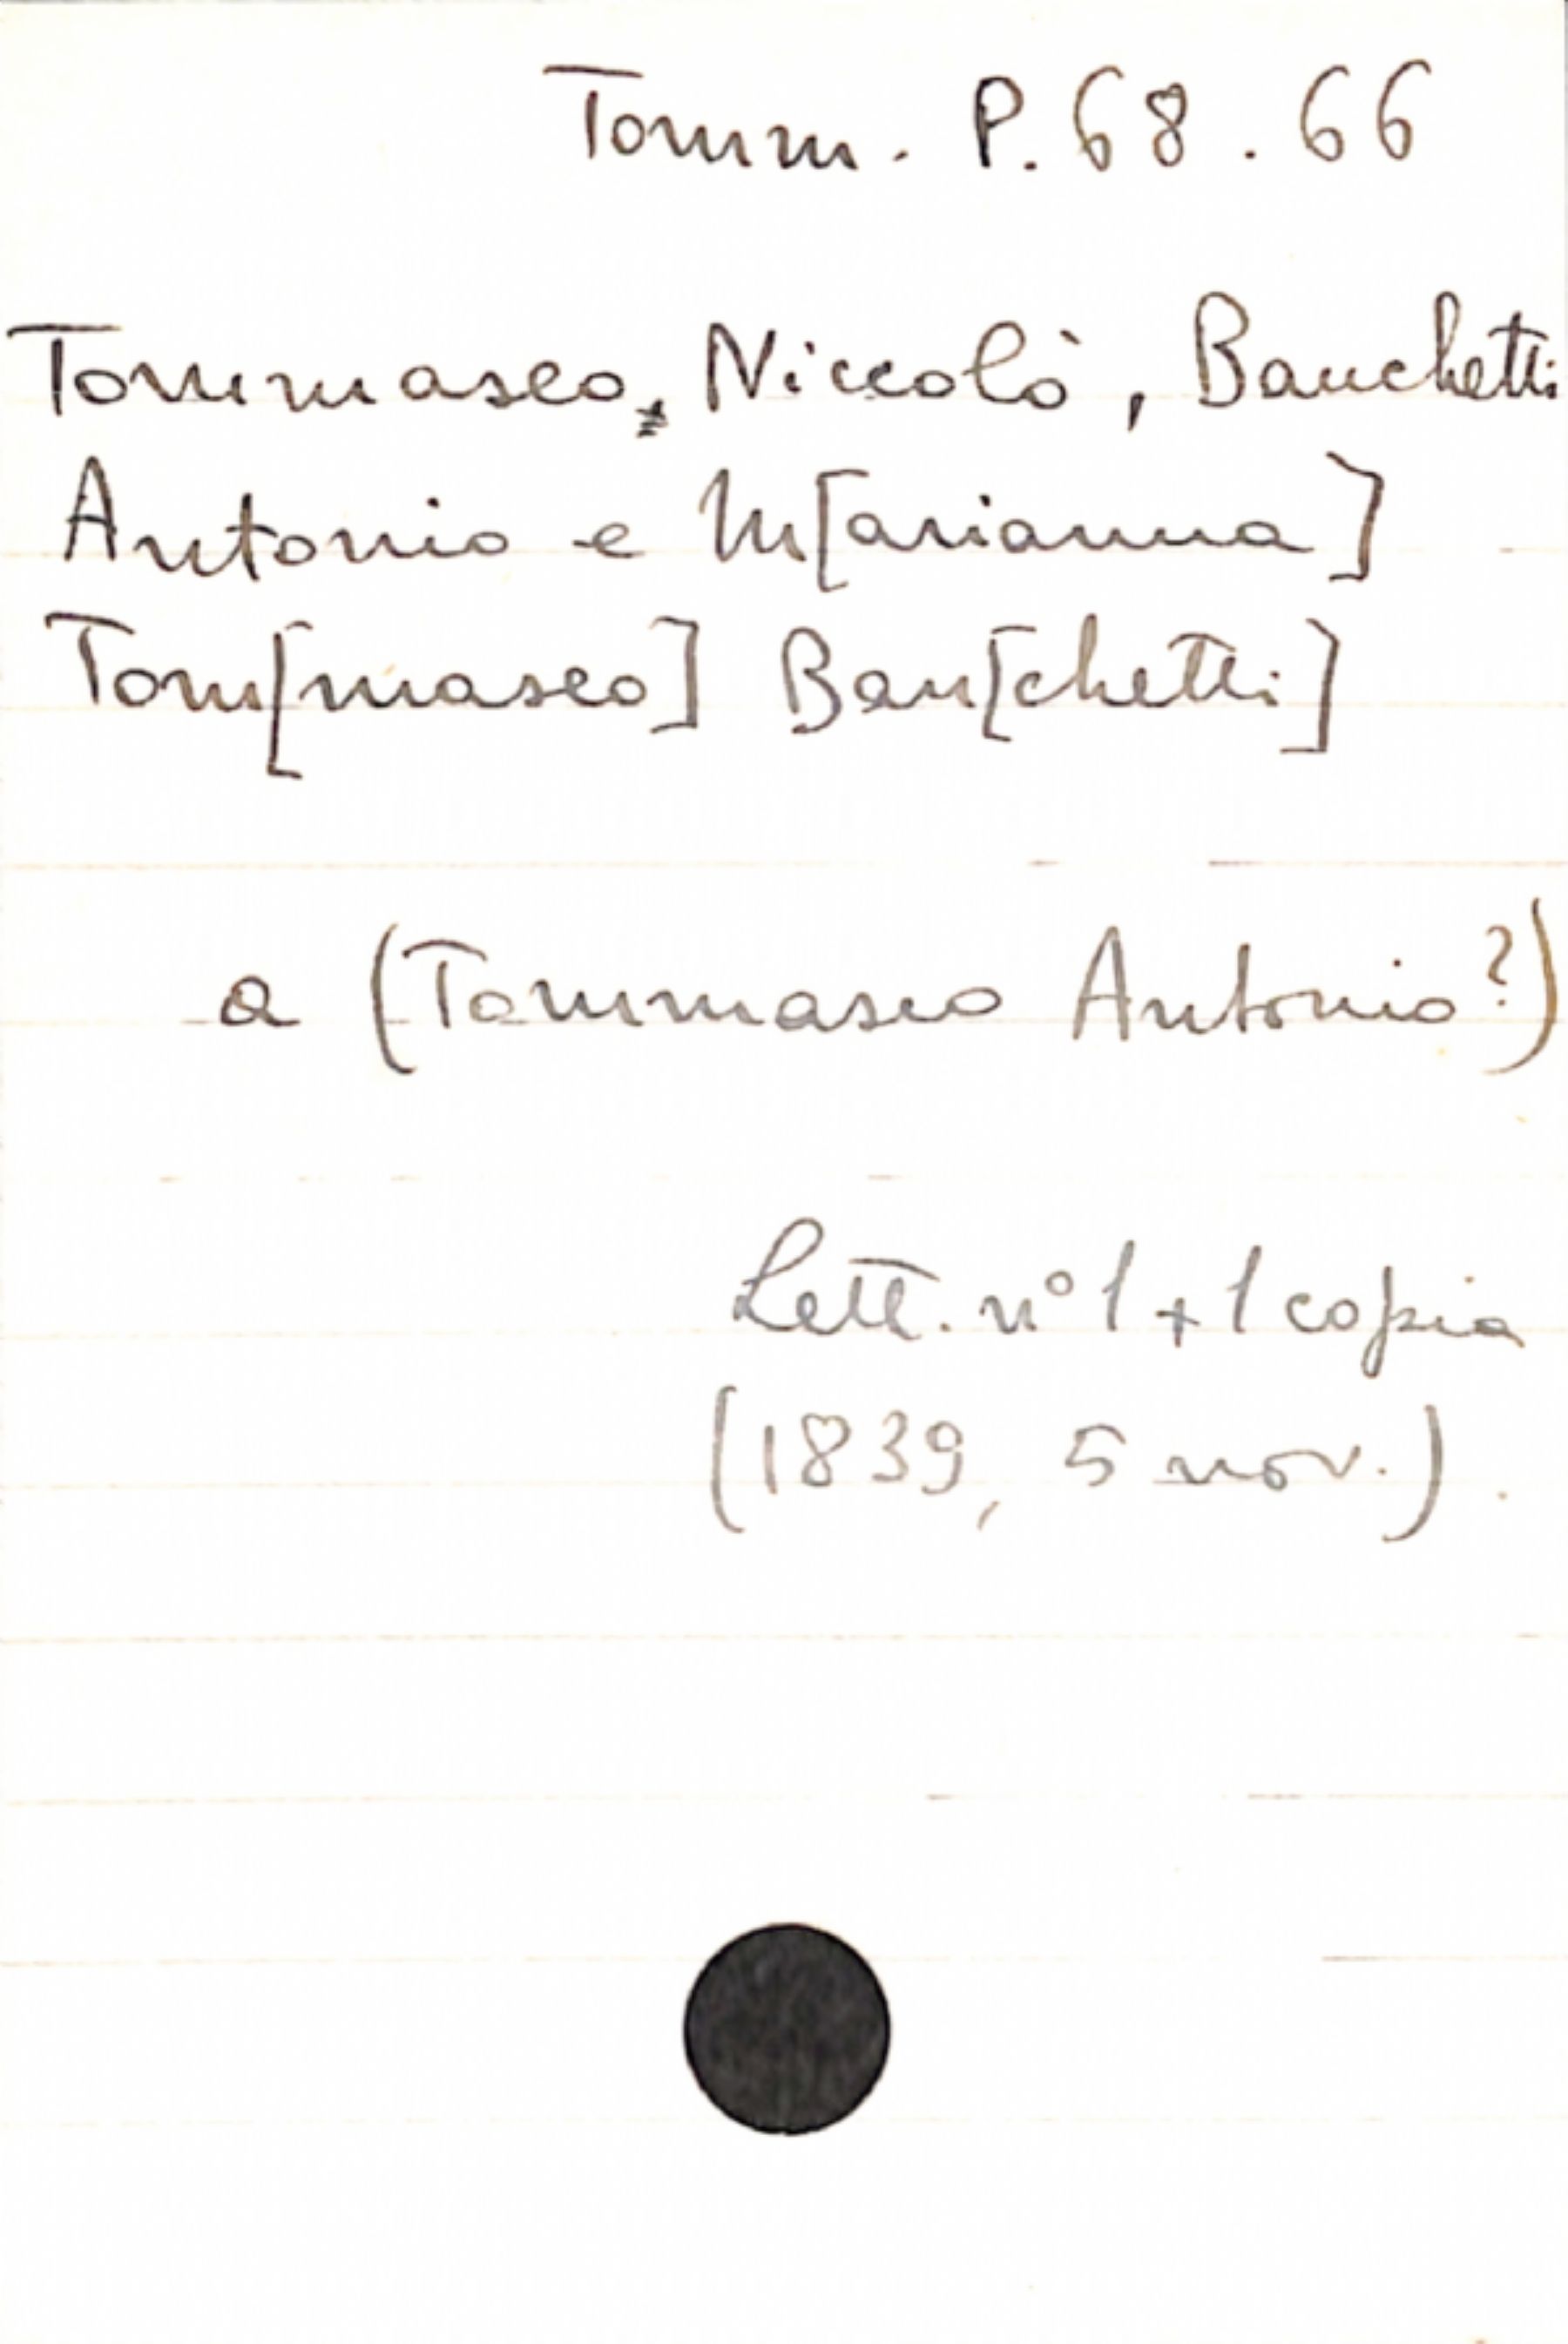 Tomm. P. 68. 66
Tommaseo, Niccolò, Banchetti
Antonio e M[arianna]
Tom[maseo] Ban[chetti]
a (Tommaseo Antonio?)
Lett. n° 1 + 1 copia
(1839, 5 nov.).